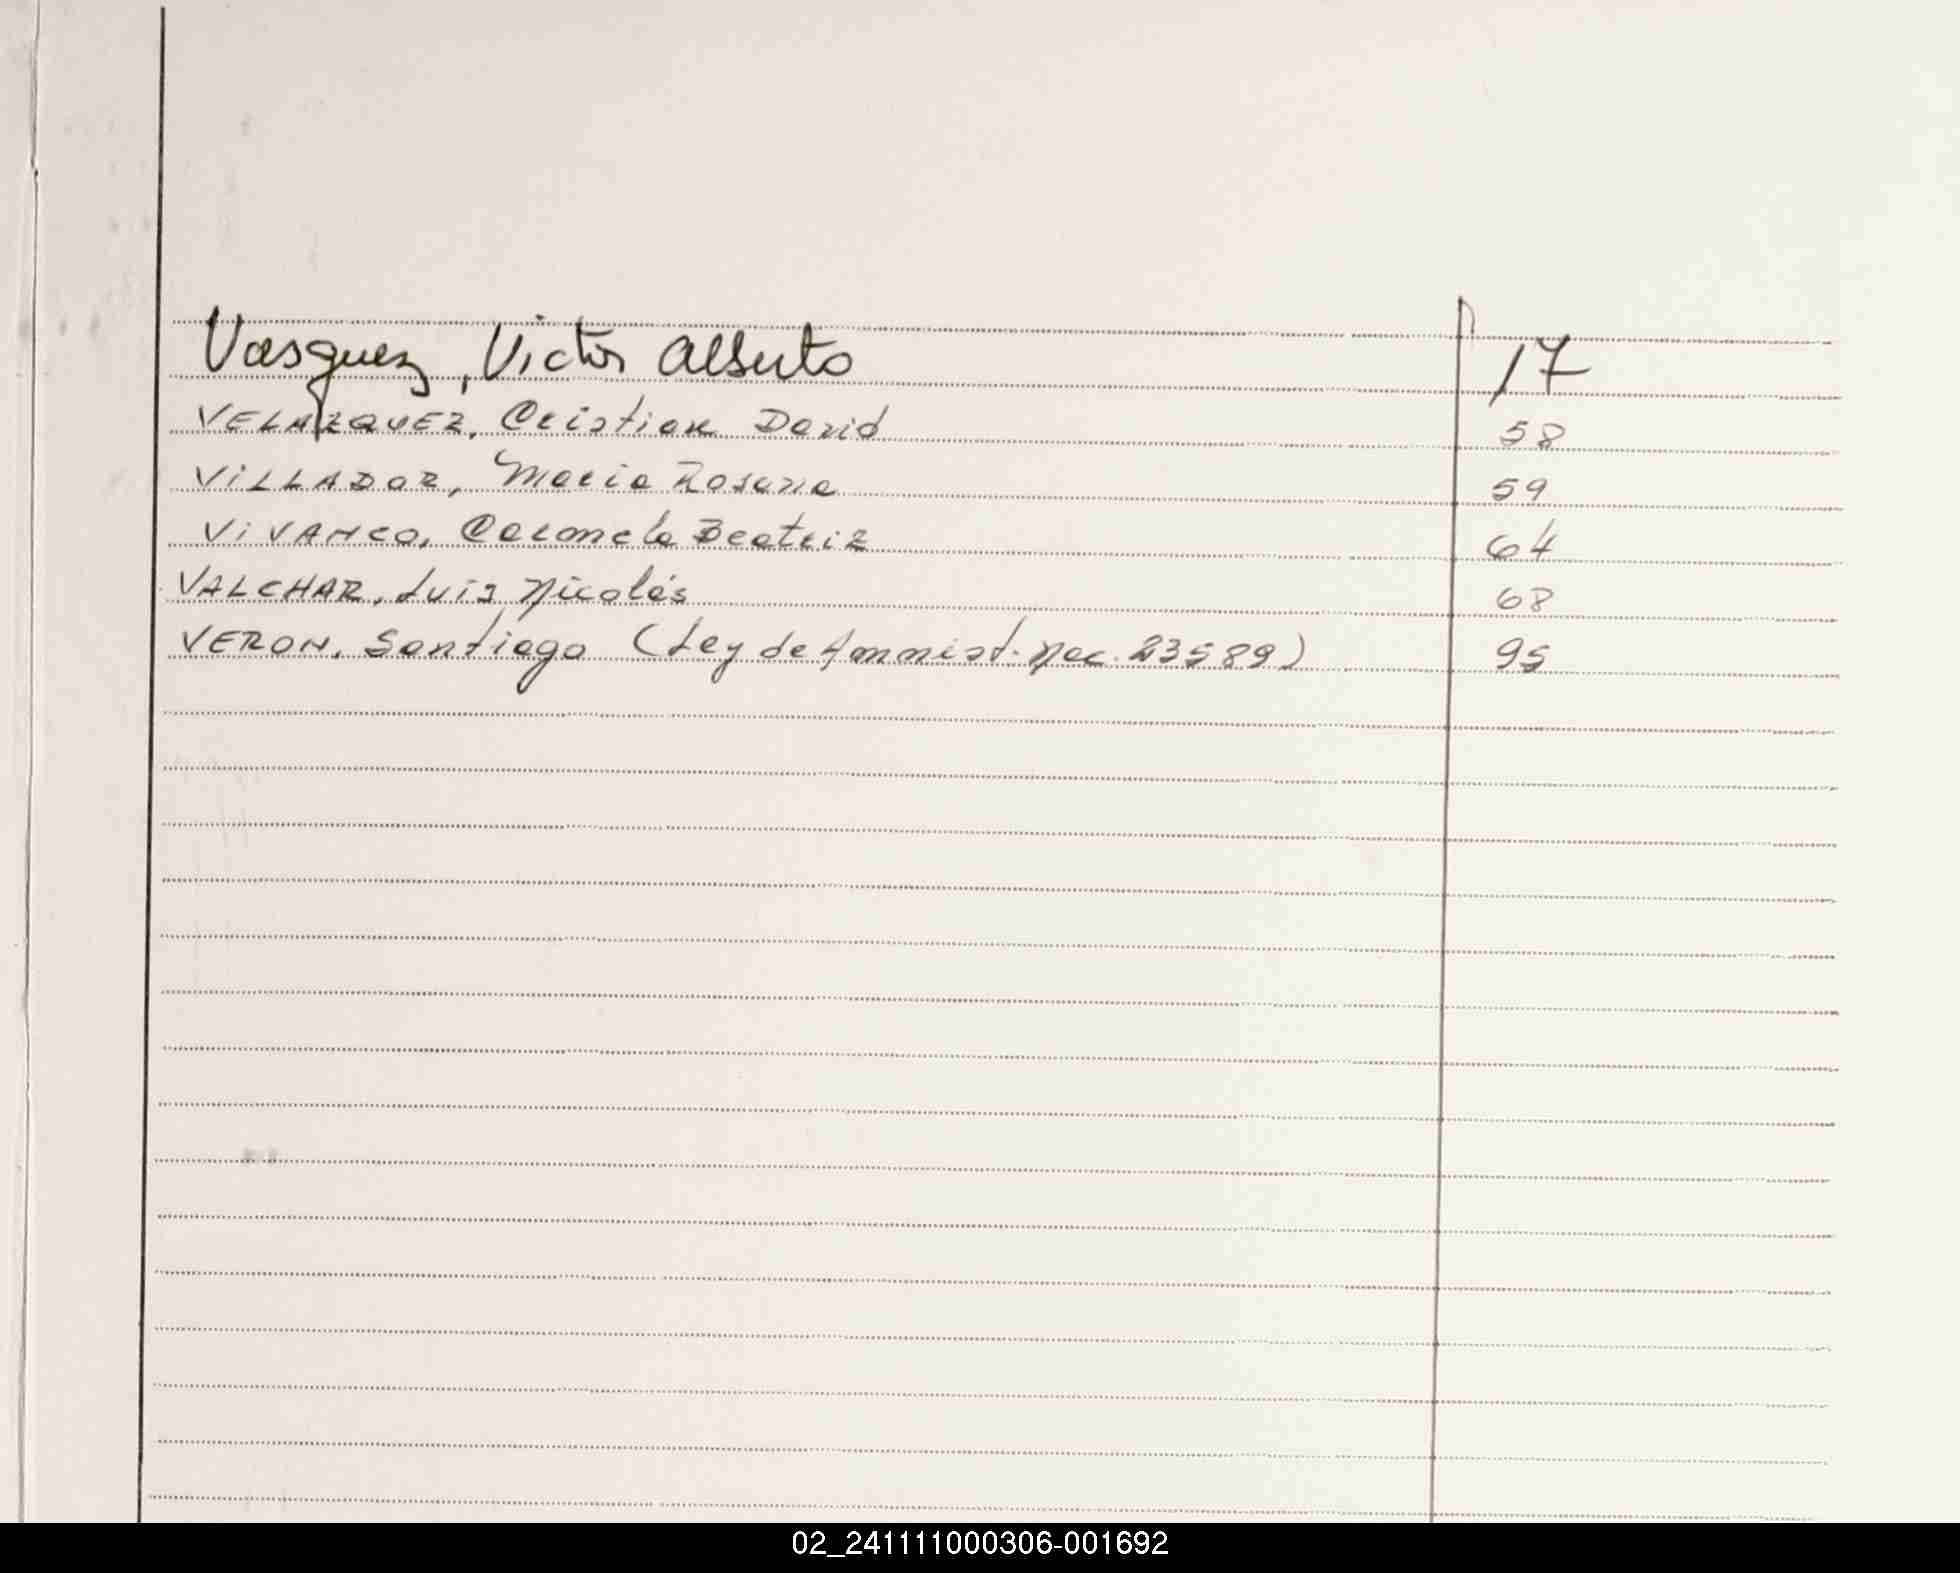 Vasquez, Victor Alberto 17
VELAZQUEZ, Cristian David 58
ViLLADOR, Maria Rosana 59
ViVANCO, Carmela Beatriz 64
VALCHAR, Luis Nicolás 68
VERON, Santiago (Ley de Amnist. Nac. 23589) 95
02_241111000306-001692